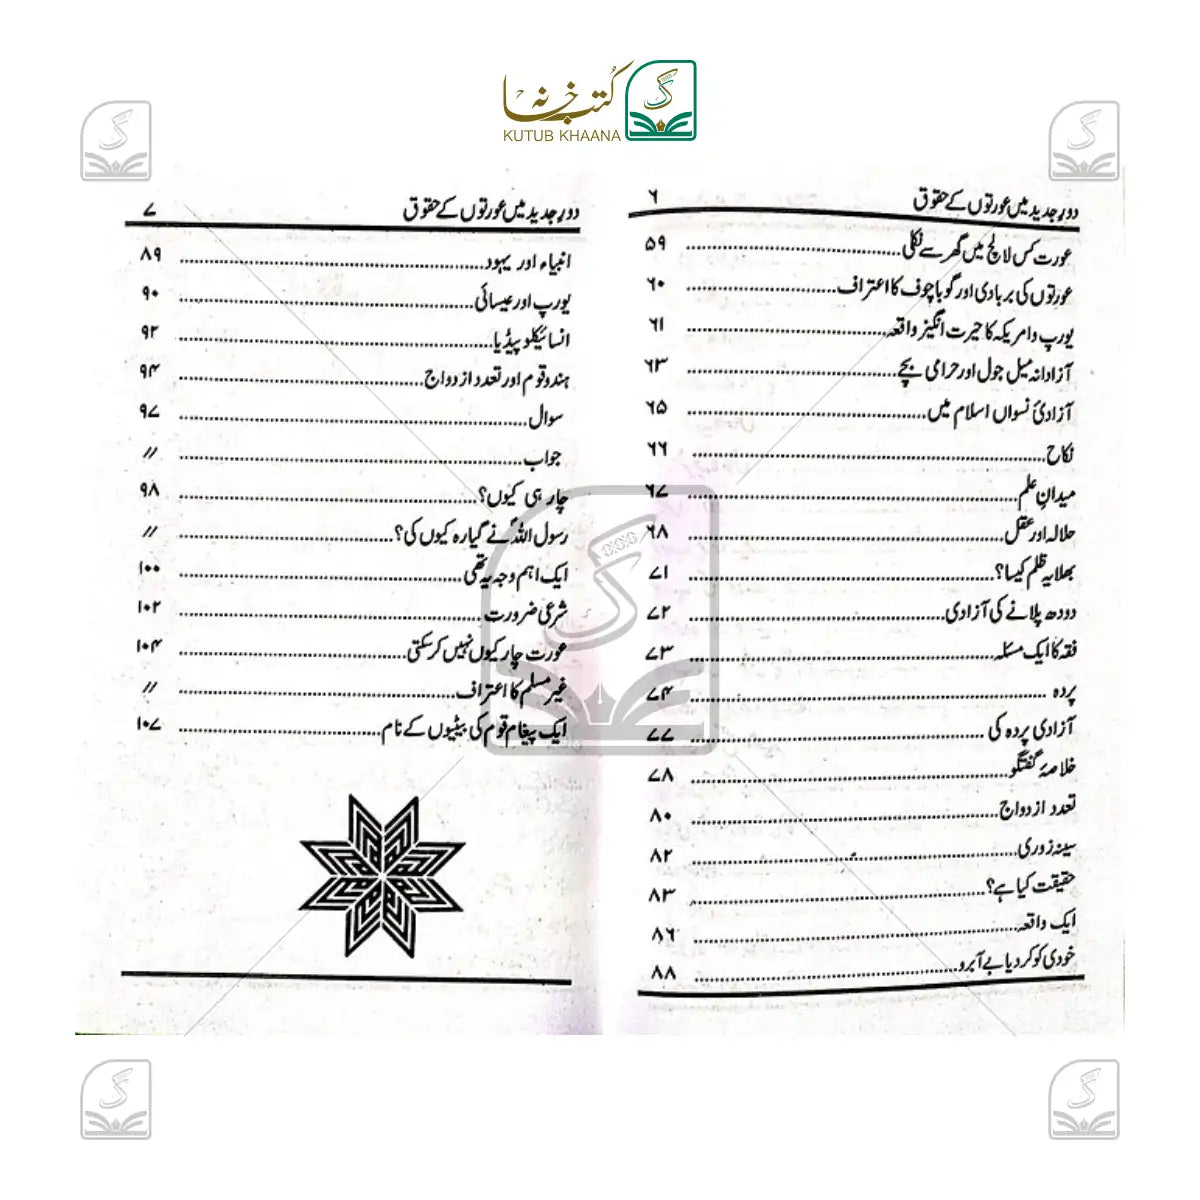 کتب خانہ
KUTUB KHAANA
دورِ جدید میں عورتوں کے حقوق ۶
عورت کس لالچ میں گھر سے نکلی ۵۹
عورتوں کی بربادی اور گوباچوف کا اعتراف ۶۰
یورپ و امریکہ کا حیرت انگیز واقعہ ۶۱
آزادانہ میل جول اور حرامی بچے ۶۳
آزادیٔ نسواں اسلام میں ۶۵
نکاح ۶۶
میدانِ علم ۶۷
حلالہ اور عقل ۶۸
بھلا یہ ظلم کیسا؟ ۷۱
دودھ پلانے کی آزادی ۷۲
فقہ کا ایک مسئلہ ۷۳
پردہ ۷۴
آزادی پردہ کی ۷۷
خلاصۂ گفتگو ۷۸
تعدد ازدواج ۸۰
سینہ زوری ۸۲
حقیقت کیا ہے؟ ۸۳
ایک واقعہ ۸۶
خودی کو کر دیا بے آبرو ۸۸
دورِ جدید میں عورتوں کے حقوق ۷
انبیاء اور یہود ۸۹
یورپ اور عیسائی ۹۰
انسائیکلوپیڈیا ۹۲
ہندو قوم اور تعدد ازدواج ۹۴
سوال ۹۷
جواب //
چار ہی کیوں؟ ۹۸
رسول اللہؐ نے گیارہ کیوں کی؟ //
ایک اہم وجہ یہ تھی ۱۰۰
شرعی ضرورت ۱۰۲
عورت چار کیوں نہیں کر سکتی ۱۰۴
غیر مسلم کا اعتراف //
ایک پیغام قوم کی بیٹیوں کے نام ۱۰۷